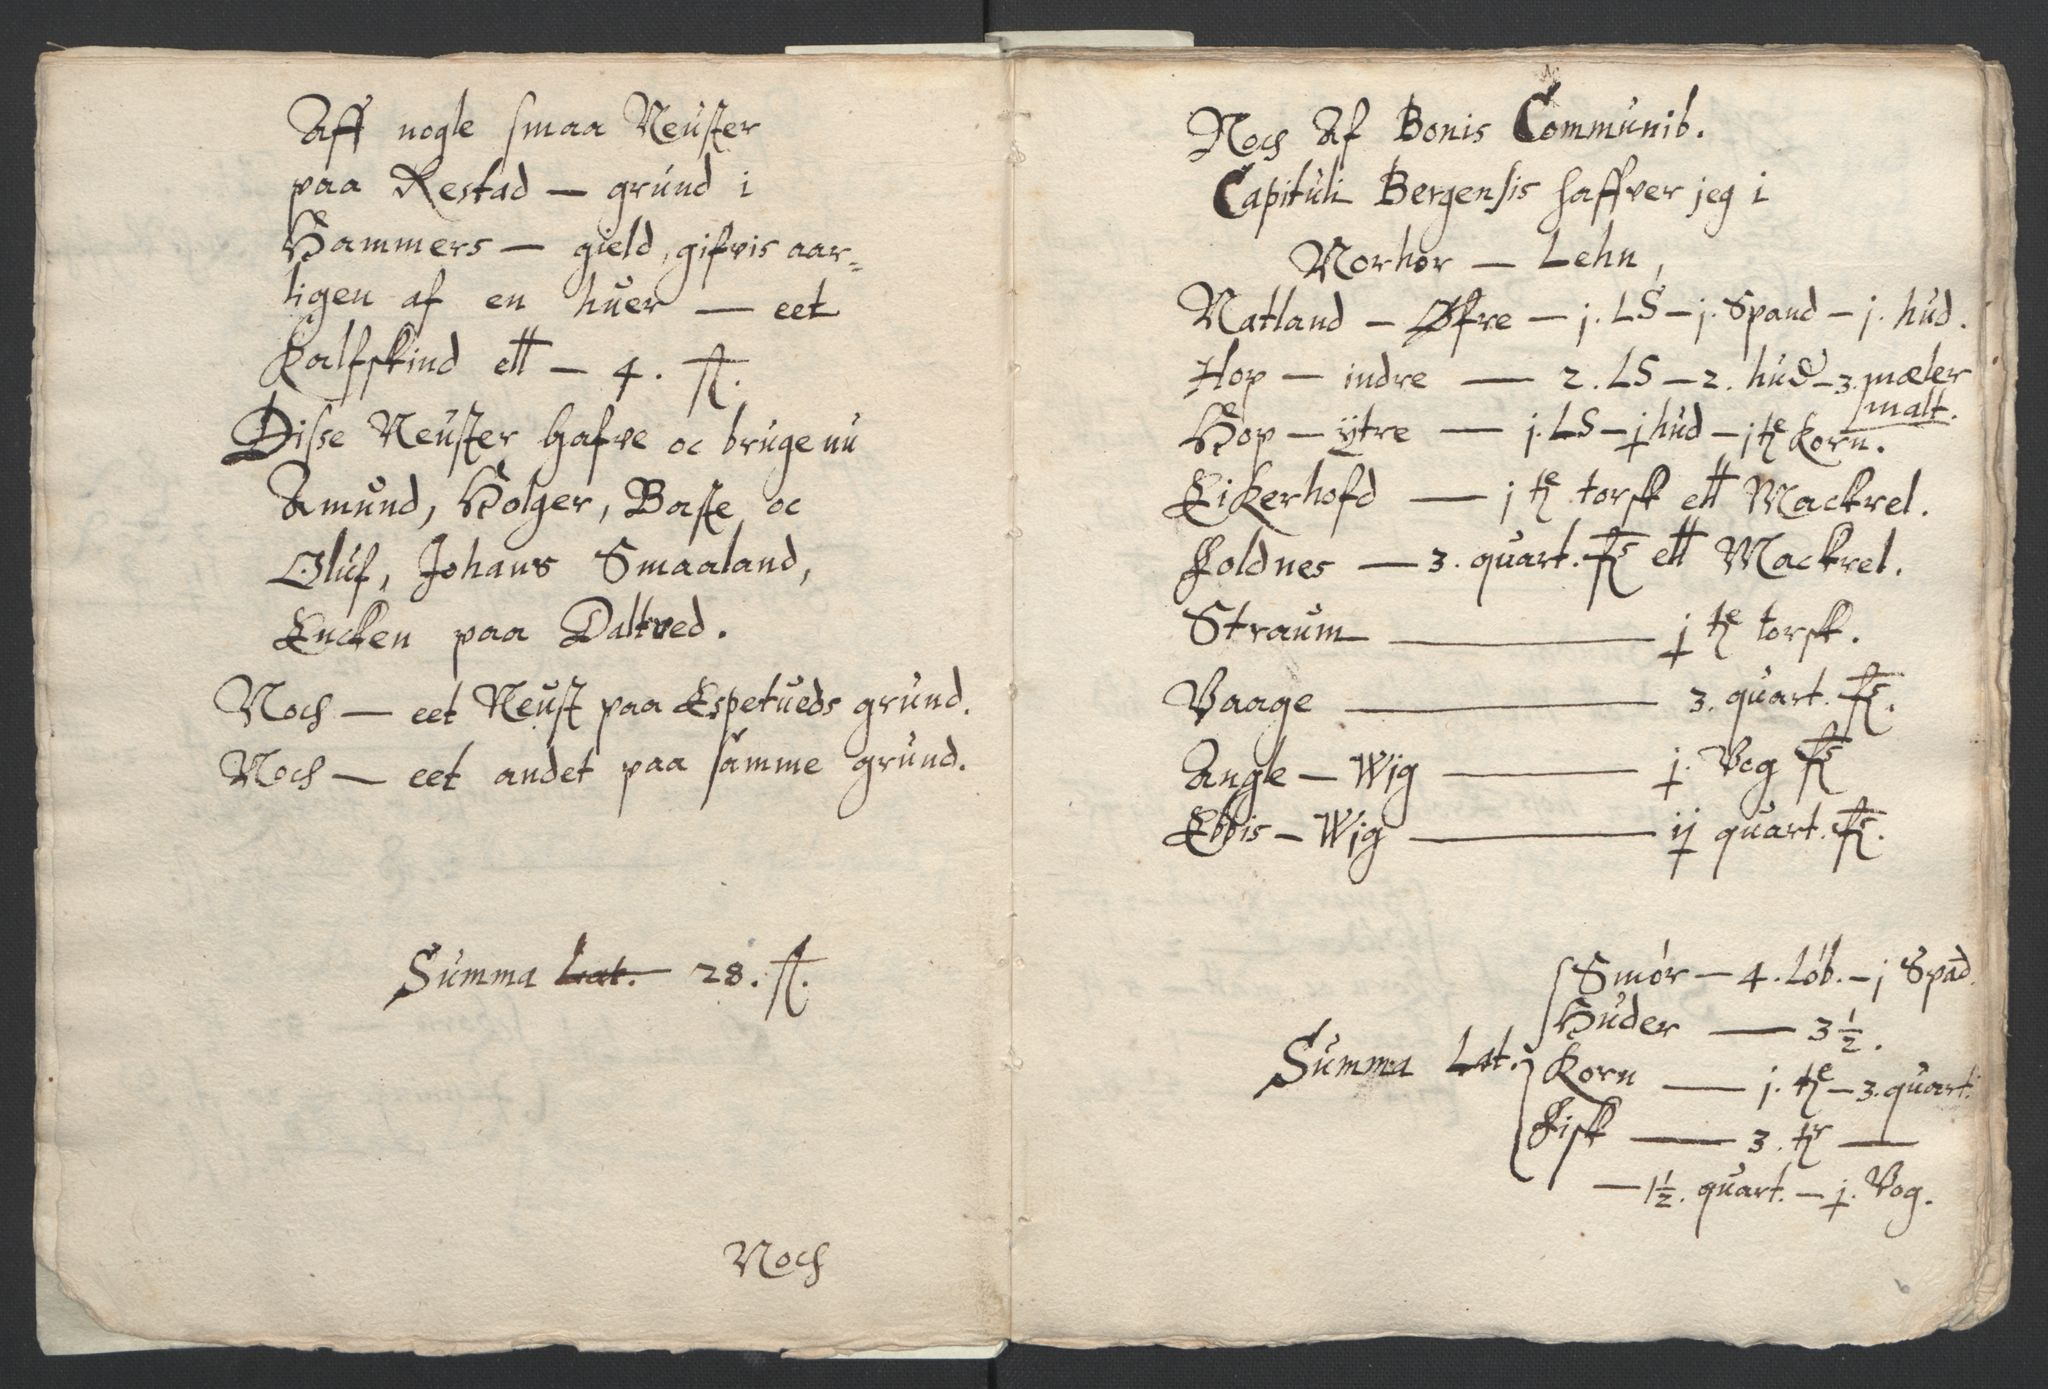 Aff nogle smaa Neuster
paa Restad — grund i
Hammers — gield, gifvis aar=
ligen af en huer — eet
Kalfskind ell — 4. ß.
Disse Neuster hafve oc bruge nu
Amund, Holger, Baste oc
Oluf, Johans Smaaland,
Encken paa Daltved.
Noch — eet Neust paa Espetueds grund.
Noch — eet andet paa samme grund.
Summa Lat. 28. ß.
Noch
Noch Af Bonis Communib.
Capituli Bergensis haffver jeg i
Norhor — Lehn,
Natland — Øfre — j. LS — j. Spand — j. hud.
Hop — indre — 2. LS — 2. hud — 3. mæler
malt.
Hop — ytre — j. LS — j hud — j tƺ Korn.
Eikerhofd — j tƺ torsk ell Mackrel.
Foldnes — 3. quart. fƺ ell Mackrel.
Straum — j tƺ torsk.
Vaage — 3. quart. fƺ.
Angle — Wjg — j. Vog fƺ
Ebbis — Wjg — ij quart. fƺ.
Summa Lat.
Smór — 4. Lób. — j Spād.
Huder — 3 ½.
Korn — j. tƺ — 3. quart.
Fisk — 3. tƺr —
— 1½. quart. — j. Vog.